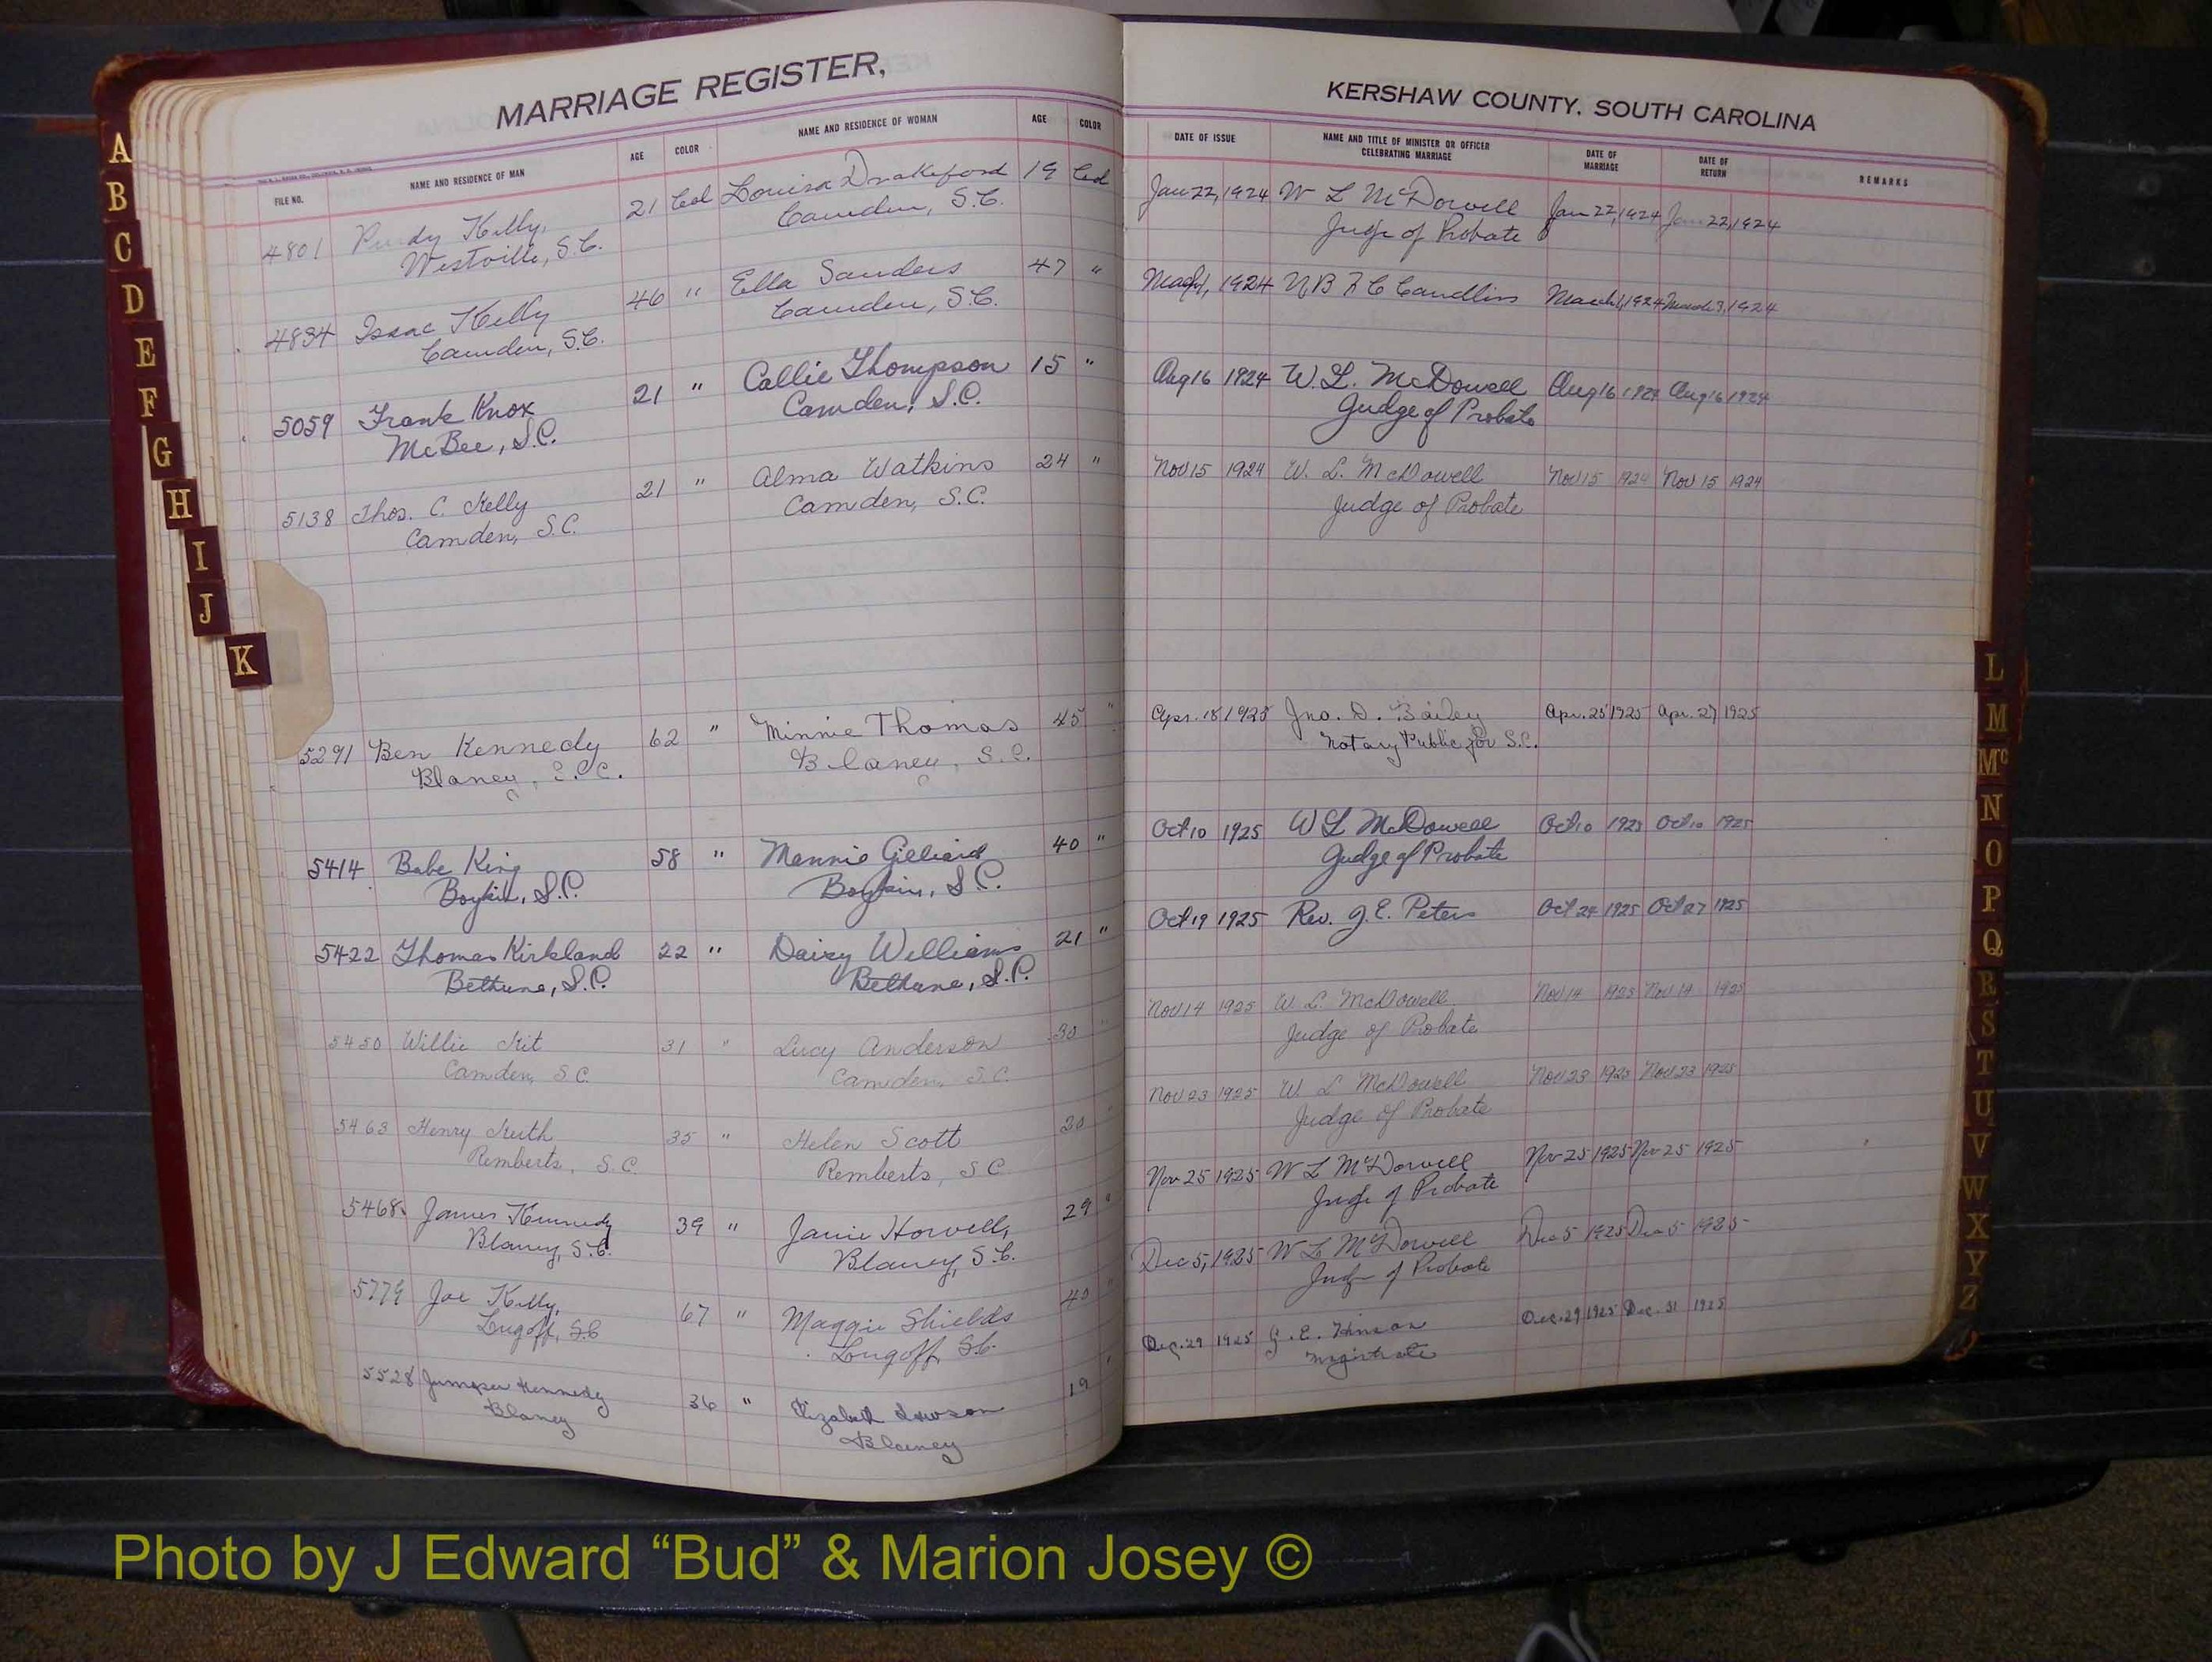 MARRIAGE REGISTER,
FILE NO. NAME AND RESIDENCE OF MAN AGE COLOR NAME AND RESIDENCE OF WOMAN AGE COLOR
4801 Purdy Kelly, 21 Col Louisa Drakeford 19 Col
Westville, S.C. Camden, S.C.
4834 Isaac Kelly 46 " Ella Sanders 47 "
Camden, S.C. Camden, S.C.
5059 Frank Knox 21 " Callie Thompson 15 "
McBee, S.C. Camden, S.C.
5138 Thos. C. Kelly 21 " Alma Watkins 24 "
Camden, S.C. Camden, S.C.
5291 Ben Kennedy 62 " Minnie Thomas 45 "
Blaney, S.C. Blaney, S.C.
5414 Babe King 58 " 40 "
Boykin, S.C. Boykin, S.C.
5422 Thomas Kirkland 22 " Daisy Williams 21 "
Bethune, S.C. Bethune, S.C.
5450 Willie Kit 31 " Lucy Anderson 30 "
Camden, S.C. Camden, S.C.
5463 Henry Keith 35 " Helen Scott 20 "
Remberts, S.C. Remberts, S.C.
5468 James Kennedy 39 " Janie Howell, 29 "
Blaney, S.C. Blaney, S.C.
5779 Joe Kelly, 67 " Maggie Shields 40 "
Lugoff, S.C Lougoff, S.C.
5528 Kennedy 36 " Elizabeth Lawson 19 '
Blaney Blaney
KERSHAW COUNTY. SOUTH CAROLINA
DATE OF ISSUE NAME AND TITLE OF MINISTER OR OFFICER CELEBRATING MARRIAGE DATE OF MARRIAGE DATE OF RETURN REMARKS
Jan 22, 1924 W L McDowell Jan 22, 1924 Jan 22, 1924
Judge of Probate
1924 March 1, 1924 March 3, 1924
Aug 16 1924 W. L. McDowell Aug 16 1924 Aug 16 1924
Judge of Probate
Nov 15 1924 W. L. McDowell Nov 15 1924 Nov 15 1924
Judge of Probate
Apr. 18 1925 Jno. D. Bailey Apr. 25 1925 Apr. 27 1925
Notary Public for S.C.
Oct 10 1925 W L McDowell Oct 10 1925 Oct 10 1925
Judge of Probate
Oct 19 1925 Rev. J. E. Peters Oct 24 1925 Oct 27 1925
Nov 14 1925 W. L. McDowell Nov 14 1925 Nov 14 1925
Judge of Probate
Nov 23 1925 W. L McDowell Nov 23 1925 Nov 23 1925
Judge of Probate
Nov 25 1925 W L McDowell Nov 25 1925 Nov 25 1925
Judge of Probate
Dec 5, 1925 W L McDowell Dec 5 1925 Dec 5 1925
Judge of Probate
Dec. 29 1925 G. E. Hinson Dec. 29 1925 Dec. 31 1925
Magistrate
A
B
C
D
E
F
G
H
I
J
K
L
M
Mc
N
O
P
Q
R
S
T
U
V
W
X
Y
Z
Photo by J Edward “Bud” & Marion Josey ©